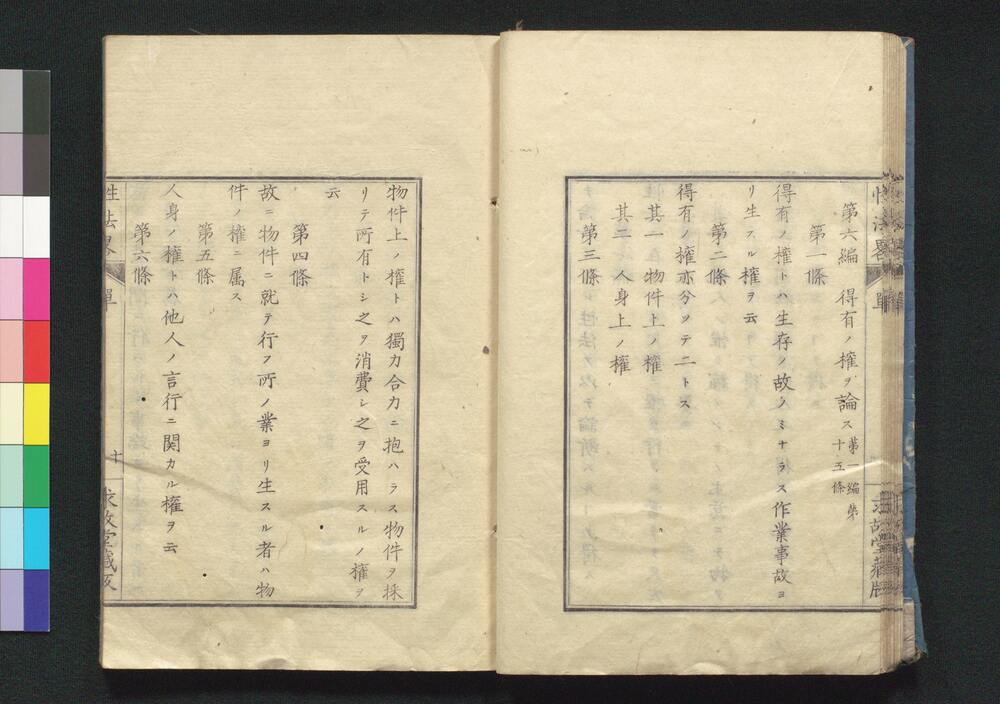 第六編 得有ノ權ヲ論ス 第一編第十五條
第一條
得有ノ權トハ生存ノ故ノミナラス作業事故ヨ
リ生スル權ヲ云
第二條
得有ノ權亦分ツテ二トス
其一 物件上ノ權
其二 人身上ノ權
第三條
物件上ノ權トハ獨力合力ニ抱ハラス物件ヲ採
リテ所有トシ之ヲ消費シ之ヲ受用スルノ權ヲ
云
第四條
故ニ物件ニ就テ行フ所ノ業ヨリ生スル者ハ物
件ノ權ニ属ス
第五條
人身ノ權トハ他人ノ言行ニ関カル權ヲ云
第六條
性法畧 單 十 求故堂藏版